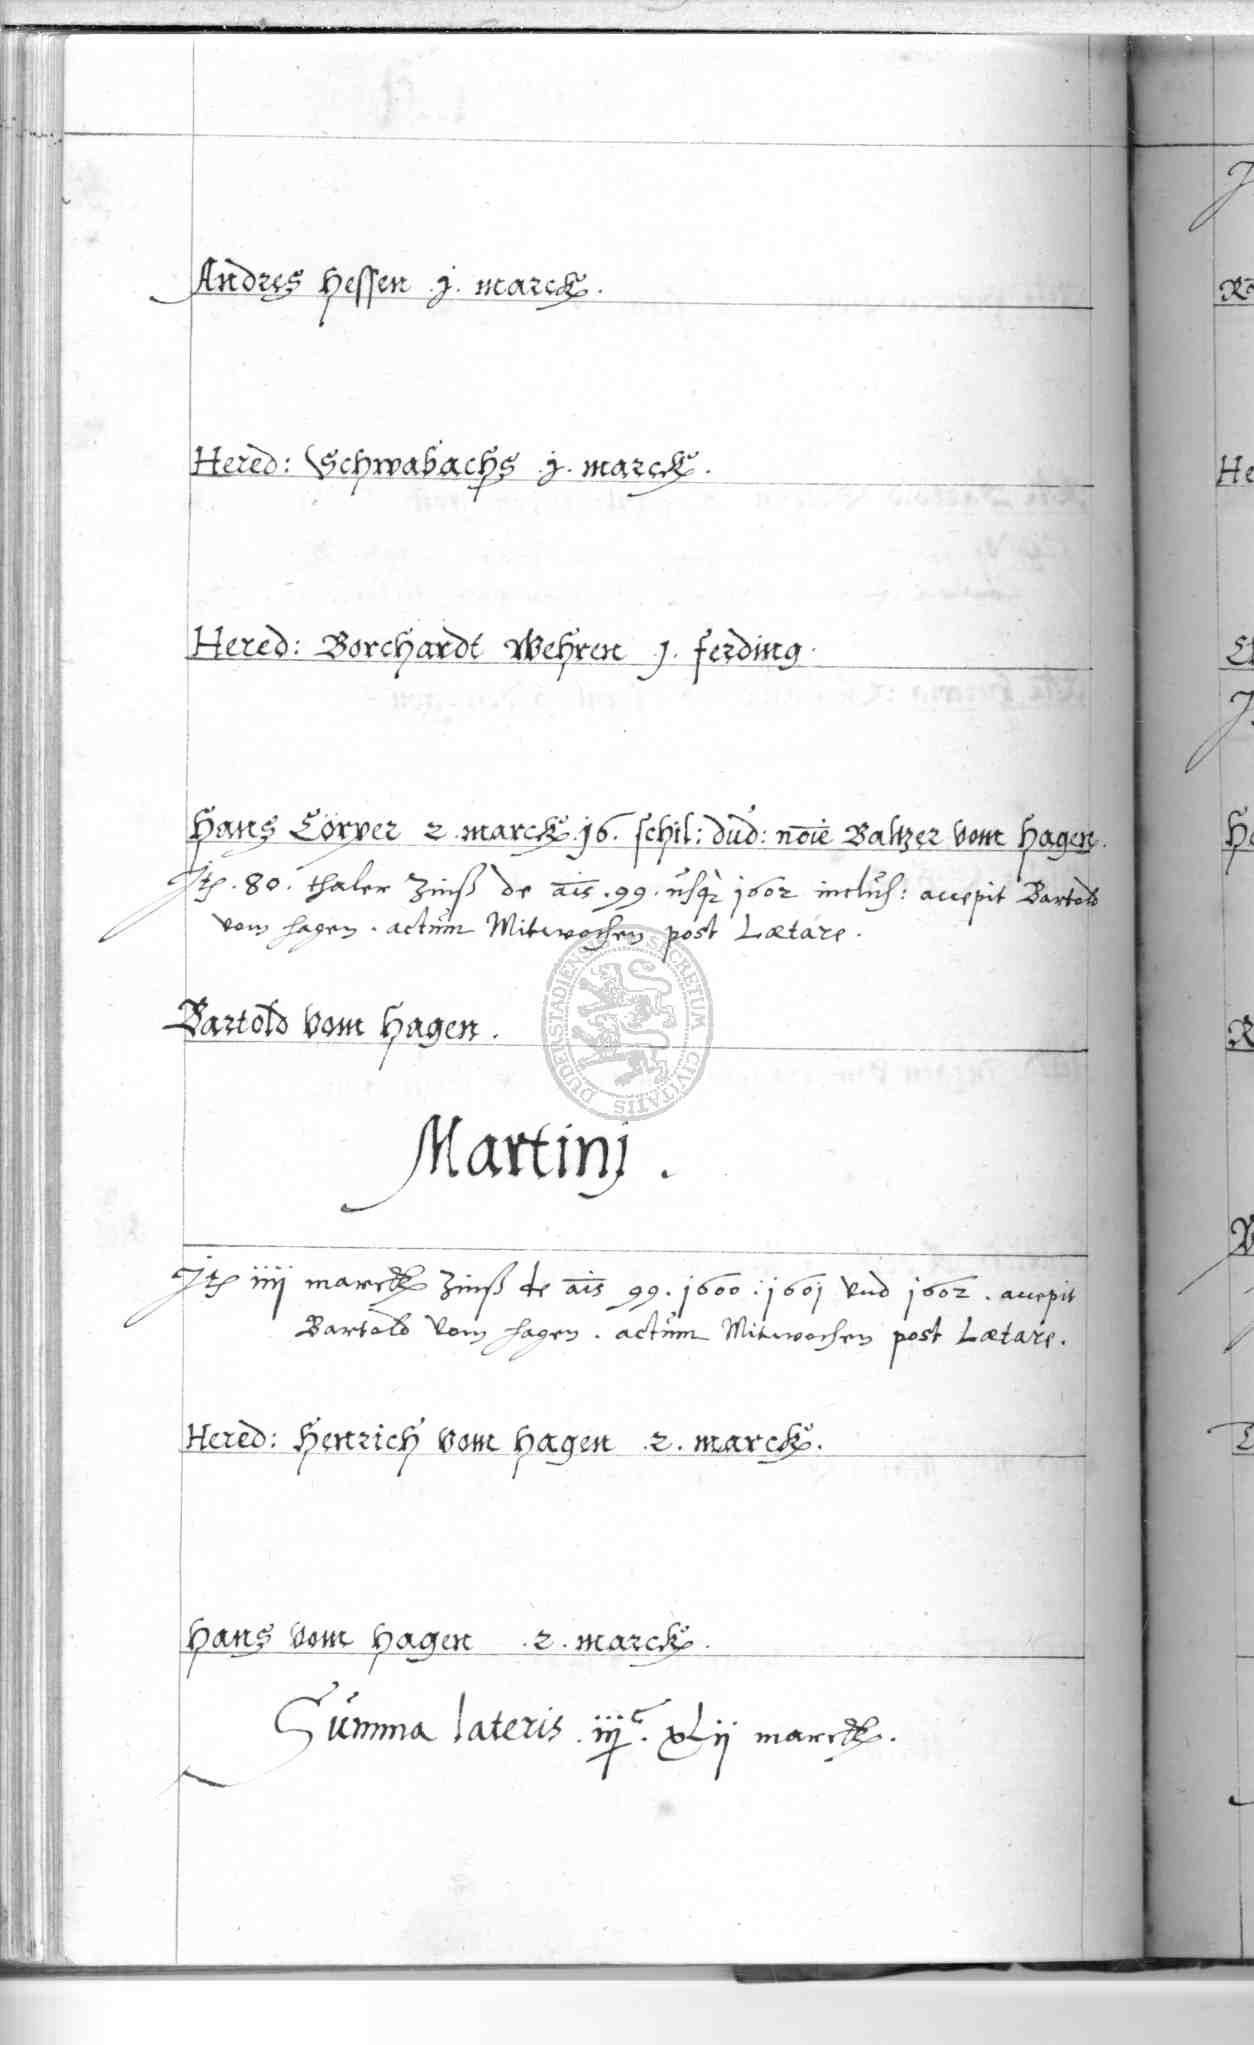 Andres Hessen .j. marck.
Hered: Schwabachs .j. marck.
Hered: Borchardt Wehren j. ferding.
Hans Cörver 2. marck. j6. schil: dud: no͞ie Baltzer vom Hagen.
Jt. 80. thaler Zinß de a͞is .99. usq j602 inclus: accepit Bartold
vom Hagen. actum Mitwochen post Lætare.
Bartold vom Hagen.
DUDERSTADIENSIS SECRETUM CIVITATIS
Martinj.
Jt iiij marck Zinß de a͞is 99. j600. j60j und j602. accepit
Bartold vom Hagen. actum Mitwochen post Lætare.
Hered: Henrich vom Hagen .2. marck.
Hans vom Hagen .2. marck.
Summa lateris .iijᶜ. xLij marck.